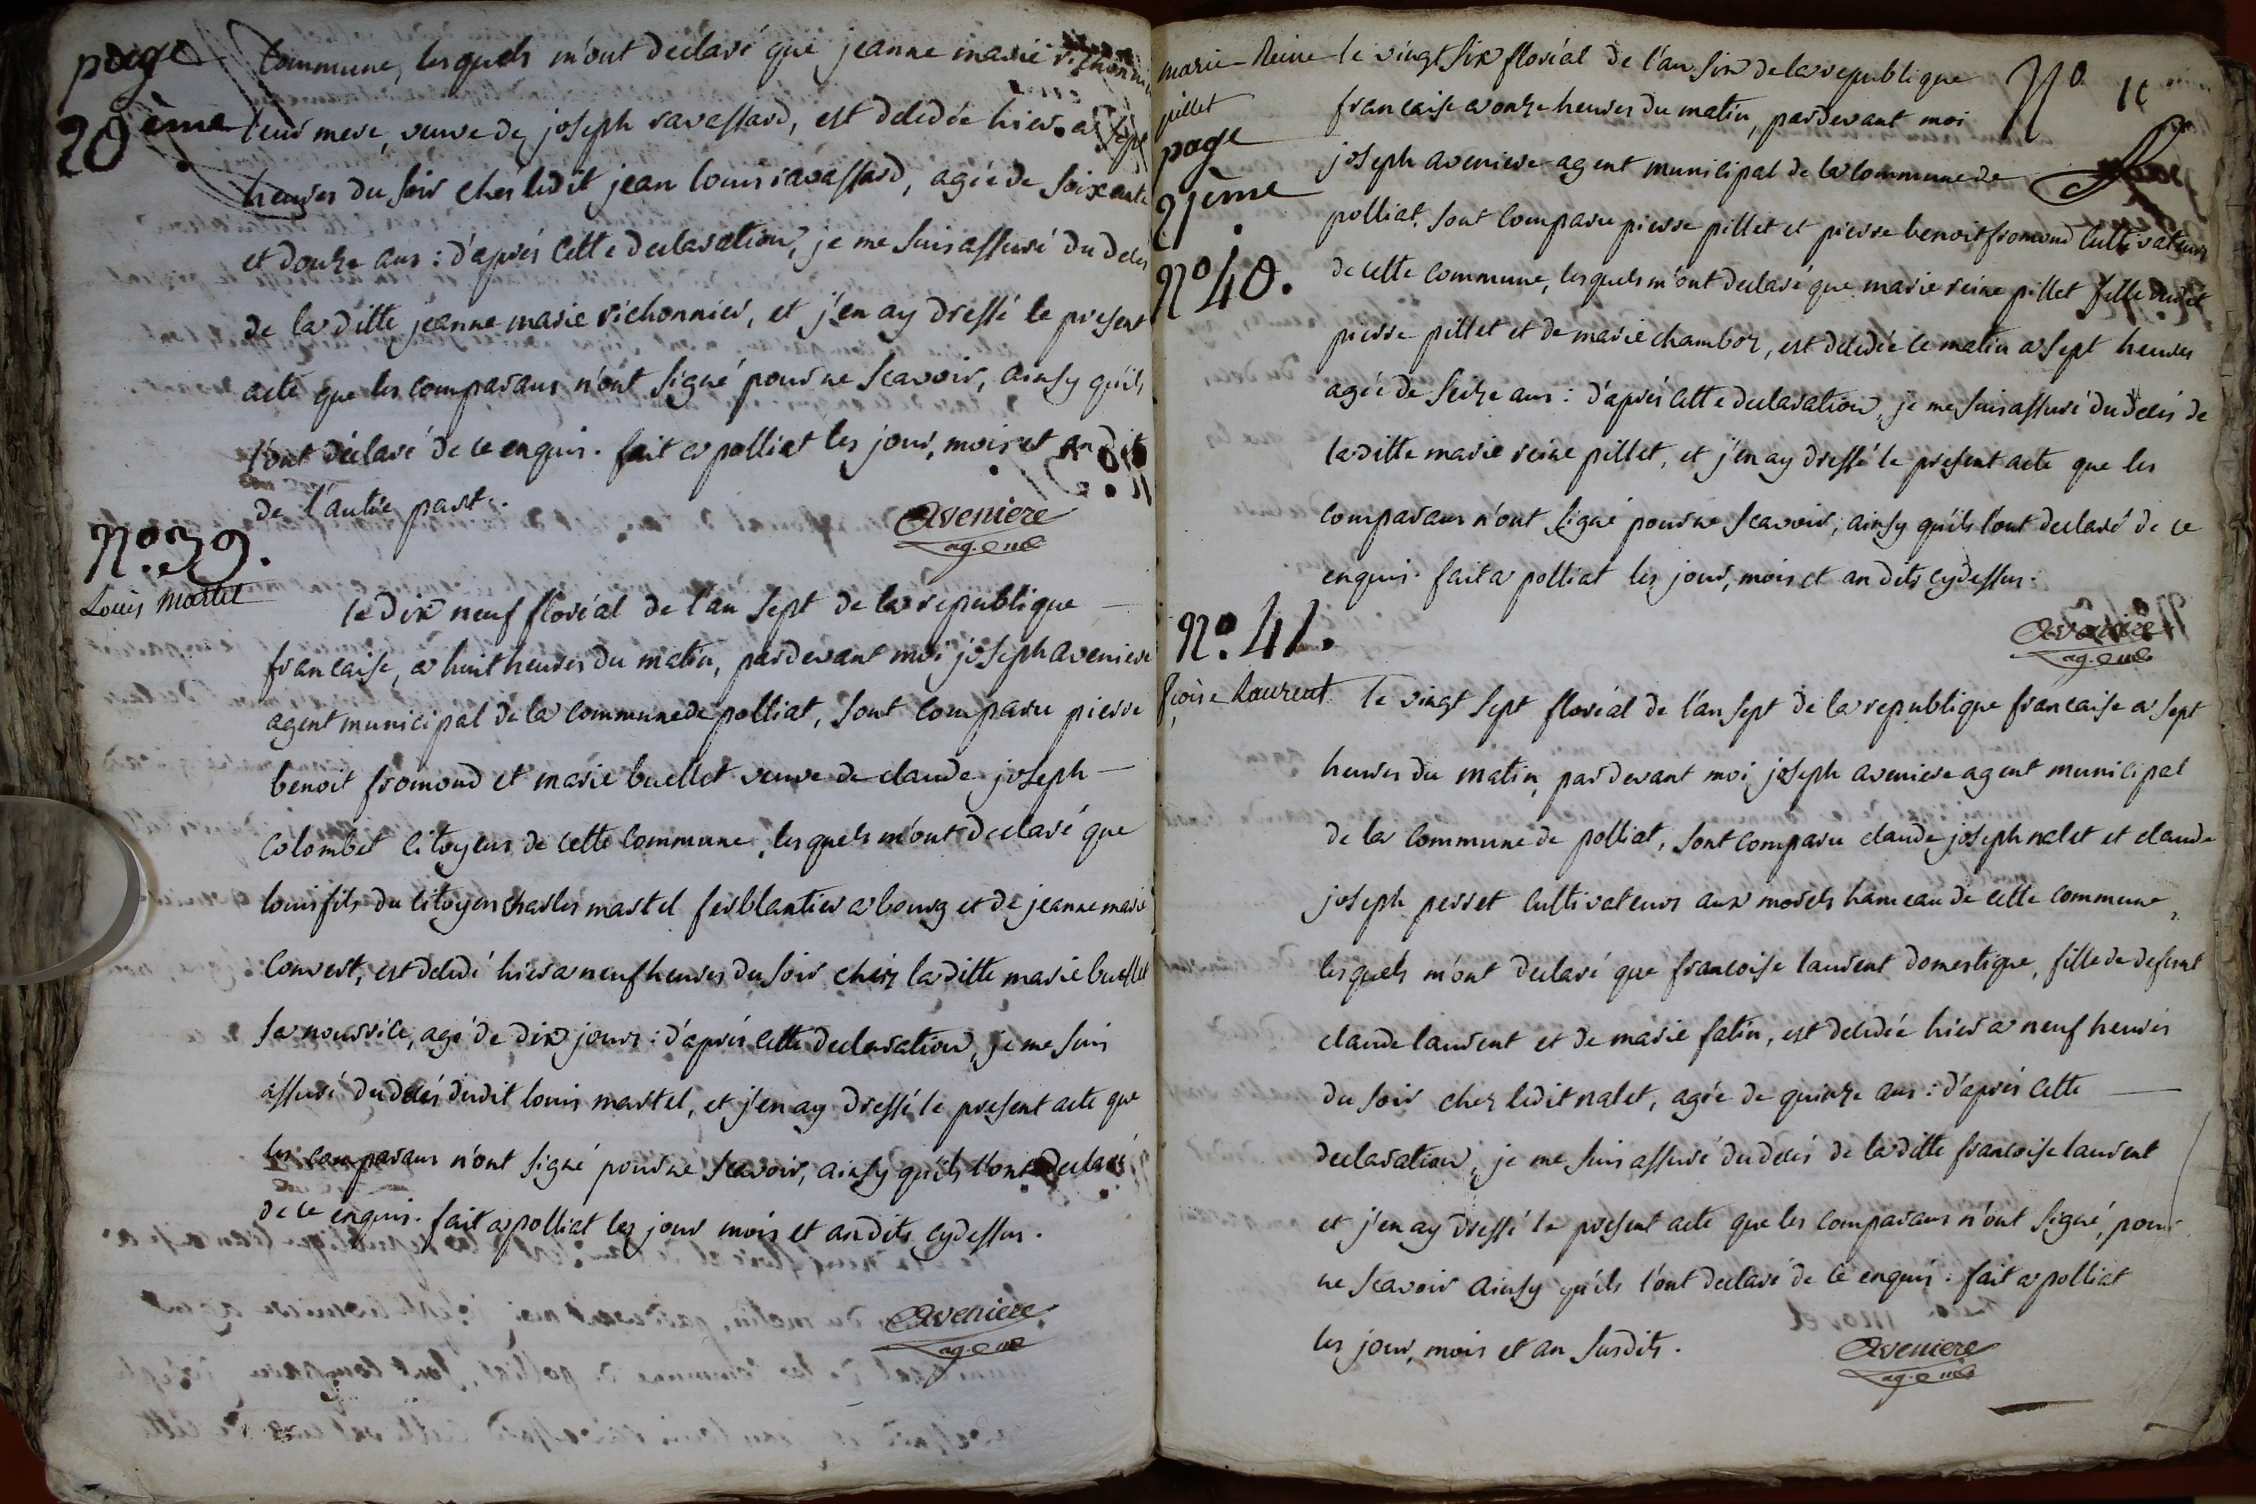 page
20ème
commune, lesquels m'ont declaré que jeanne marie richonnier
leur mere, veuve de joseph ravassard, est décédée hier a sept
heures du soir chez ledit jean louis ravassard, agée de soixante
et douze ans : d'aprés cette declaration, je me suis assuré du decés
de la ditte jeanne marie richonnier, et j'en ay dressé le present
acte que les comparans n'ont signé pour ne scavoir, ainsy qu'ils
l'ont déclaré de ce enquis. fait a polliat les jour, mois et an dits
de l'autre part.
Aveniere
ag. m
N.o 39.
Louis Martel
le dix neuf floréal de l'an sept de la republique
francaise, a huit heures du matin, pardevant moi joseph aveniere
agent municipal de la commune de polliat, sont comparu pierre
benoit fromond et marie buellet veuve de claude joseph
colombet citoyens de cette commune, lesquels m'ont declaré que
louis fils du citoyen charles martel ferblantier a bourg et de jeanne marie
convert, est decedé hier a neuf heures du soir chéz la ditte marie buellet
sa nourrice, agé de dix jours : d'aprés cette declaration, je me suis
assuré du decés dudit louis martel, et j'en ay dressé le present acte que
les comparans n'ont signé pour ne scavoir, ainsy qu'ils l'ont declaré
de ce enquis. fait a polliat les jour mois et an dits cydessus.
Aveniere
ag. m
marie Reine
pillet
page
21ème
N.o 40.
N.o
le vingt six floréal de l'an six de la republique
francaise a onze heures du matin, pardevant moi
joseph aveniere agent municipal de la commune de
polliat, sont comparu pierre pillet et pierre benoit fromond cultivateurs
de cette commune, lesquels m'ont declaré que marie reine pillet fille dudit
pierre pillet et de marie chamboz, est décédée ce matin a sept heures
agée de seize ans : d'aprés cette declaration, je me suis assuré du decés de
la ditte marie reine pillet, et j'en ay dressé le present acte que les
comparans n'ont signé pour ne scavoir, ainsy qu'ils l'ont declaré de ce
enquis. fait a polliat les jour, mois et an dits cydessus.
Aveniere
ag. m
N.o 41.
fçoise Laurent
le vingt sept floréal de l'an sept de la republique francaise a sept
heures du matin, pardevant moi joseph aveniere agent municipal
de la commune de polliat, sont comparu claude joseph nalet et claude
joseph perret cultivateurs aux morels hameau de cette commune,
lesquels m'ont declaré que francoise laurent domestique, fille de defunt
claude laurent et de marie fatin, est decedée hier a neuf heures
du soir chez ledit nalet, agée de quinze ans : d'aprés cette
declaration, je me suis assuré du decés de la ditte francoise laurent
et j'en ay dressé le present acte que les comparans n'ont signé, pour
ne scavoir ainsy qu'ils l'ont declaré de ce enquis. fait a polliat
les jour, mois et an susdits.
Aveniere
ag. m